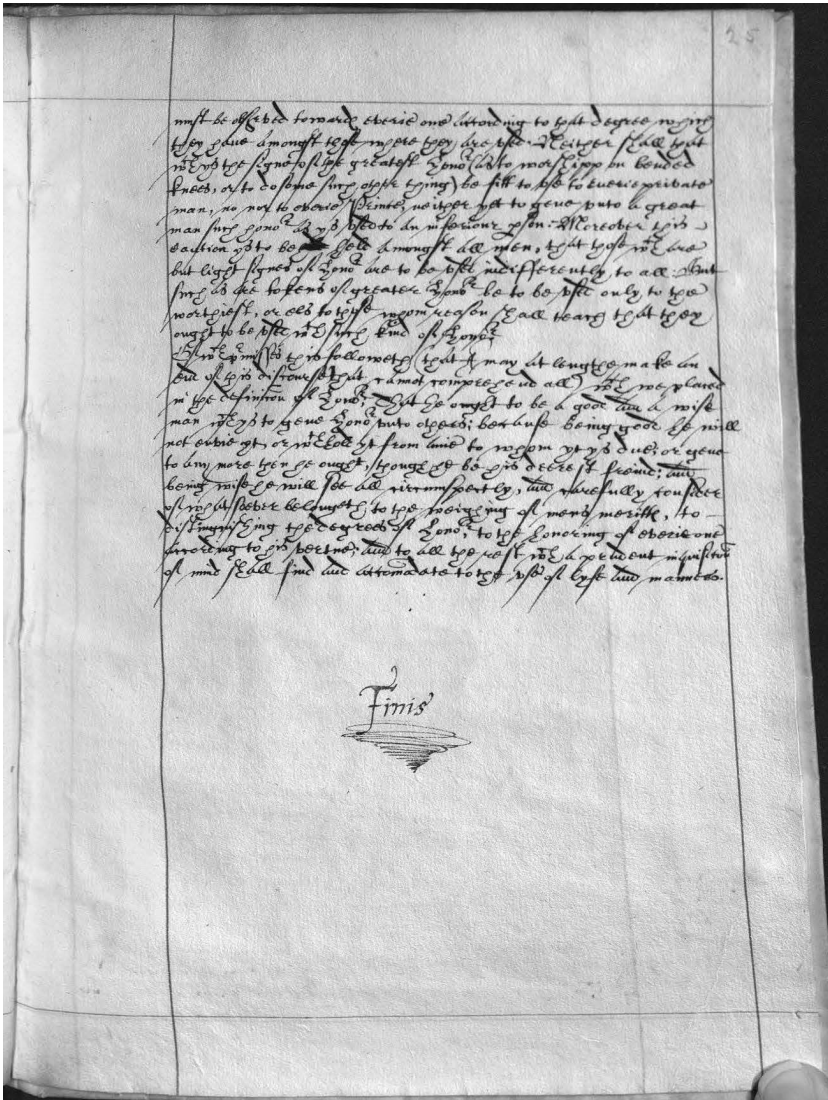 25
must be observed towards everie one according to that degree which
they have amongst those where they are used. Neither shall that
wch ys the signe of the greatest Honor (as to worshipp on bended
knees, or to do some such other thing) be fitt to use to everie private
man, no nor to everie Prince, neither yet to geve unto a great
man such honor as ys used to an inferiour pson. Moreover this
caution ys to be held amongst all men, that those wch are
but light signes of Honor are to be used indifferently to all. But
such as are tokens of greater Honor be to be used only to the
worthiest, or els to those whom reason shall teach that they
ought to be used wth such kind of Honor.
Of wch pmisses this followeth (that I may at lengthe make an
end of this discourse that cannot comprehend all) wch we placed
in the definition of Honor, That he ought to be a good and a wise
man wch ys to geve Honor unto others; because being good he will
not envie yt, or wthholl yt from anie to whom yt ys due, or geve
to any more then he ought, though he be his deerest freind; and
being wise he will see all circumspectly, and carefully consider
of whatsoever belongeth to the weighing of mens meritts, to
distinguishing the degrees of Honor, to the honoring of everie one
according to his vertue; and to all the rest wch a prudent inquisition
of mind shall find and accomodate to the use of lyfe and manners.
Finis